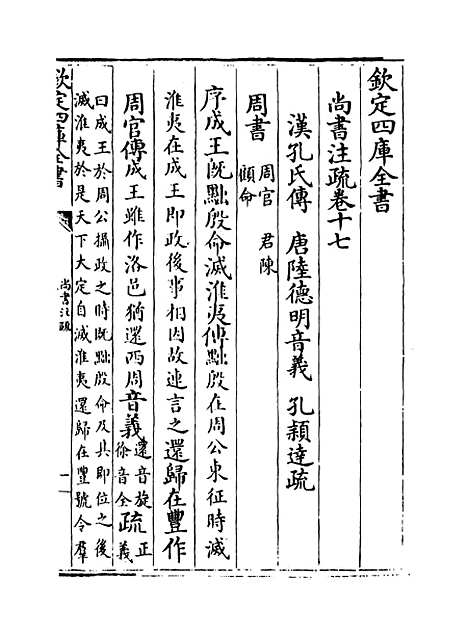 欽定四庫全書
尚書注疏卷十七
漢孔氏傳　唐陸德明音義　孔穎達疏
周書　周官　君陳
顧命
序成王既黜殷命滅淮夷傳黜殷在周公東征時滅
淮夷在成王即政後事相因故連言之還歸在豐作
周官傳成王雖作洛邑猶還西周音義還音旋
徐音全疏正
義
曰成王於周公攝政之時既黜殷命及其即位之後
滅淮夷於是天下大定自滅淮夷還歸在豐號令羣
欽定四庫全書
尚書注疏
一